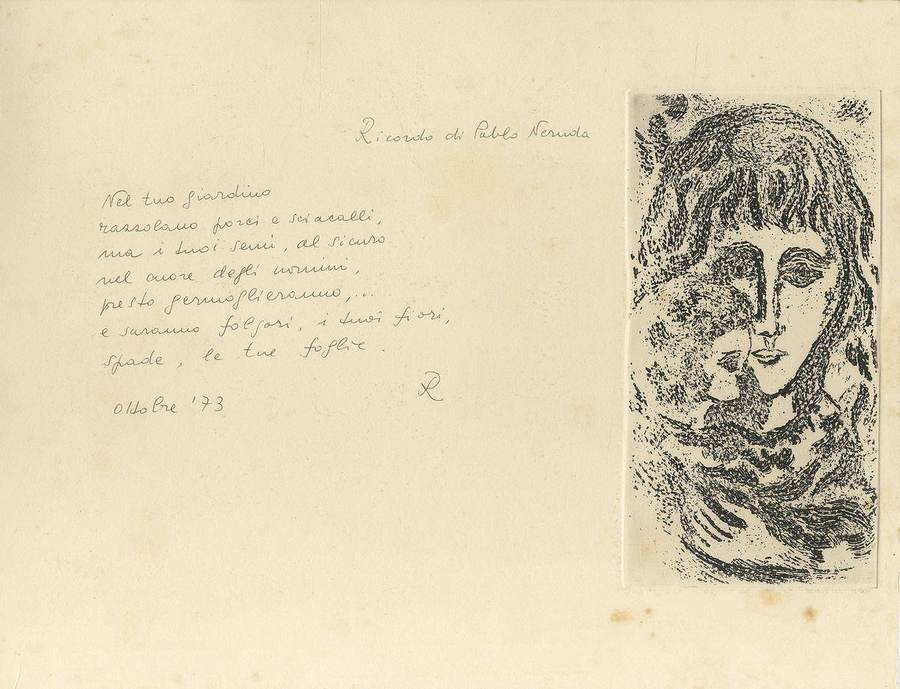 Ricordo di Pablo Neruda
Nel tuo giardino
razzolano porci e sciacalli,
ma i tuoi semi, al sicuro
nel cuore degli uomini,
presto germoglieranno,...
e saranno folgori, i tuoi fiori,
spade, le tue foglie.
R
ottobre '73